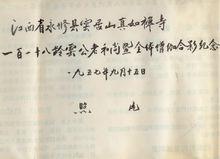 江西省永修县雲居山真如禅寺
一百一十八龄雲公老和尚暨全体僧伽合影纪念
一九五七年九月十五日
照